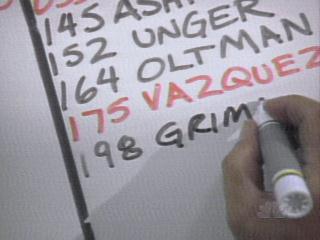 145 ASH
152 UNGER
164 OLTMAN
175 VAZQUEZ
198 GRIM